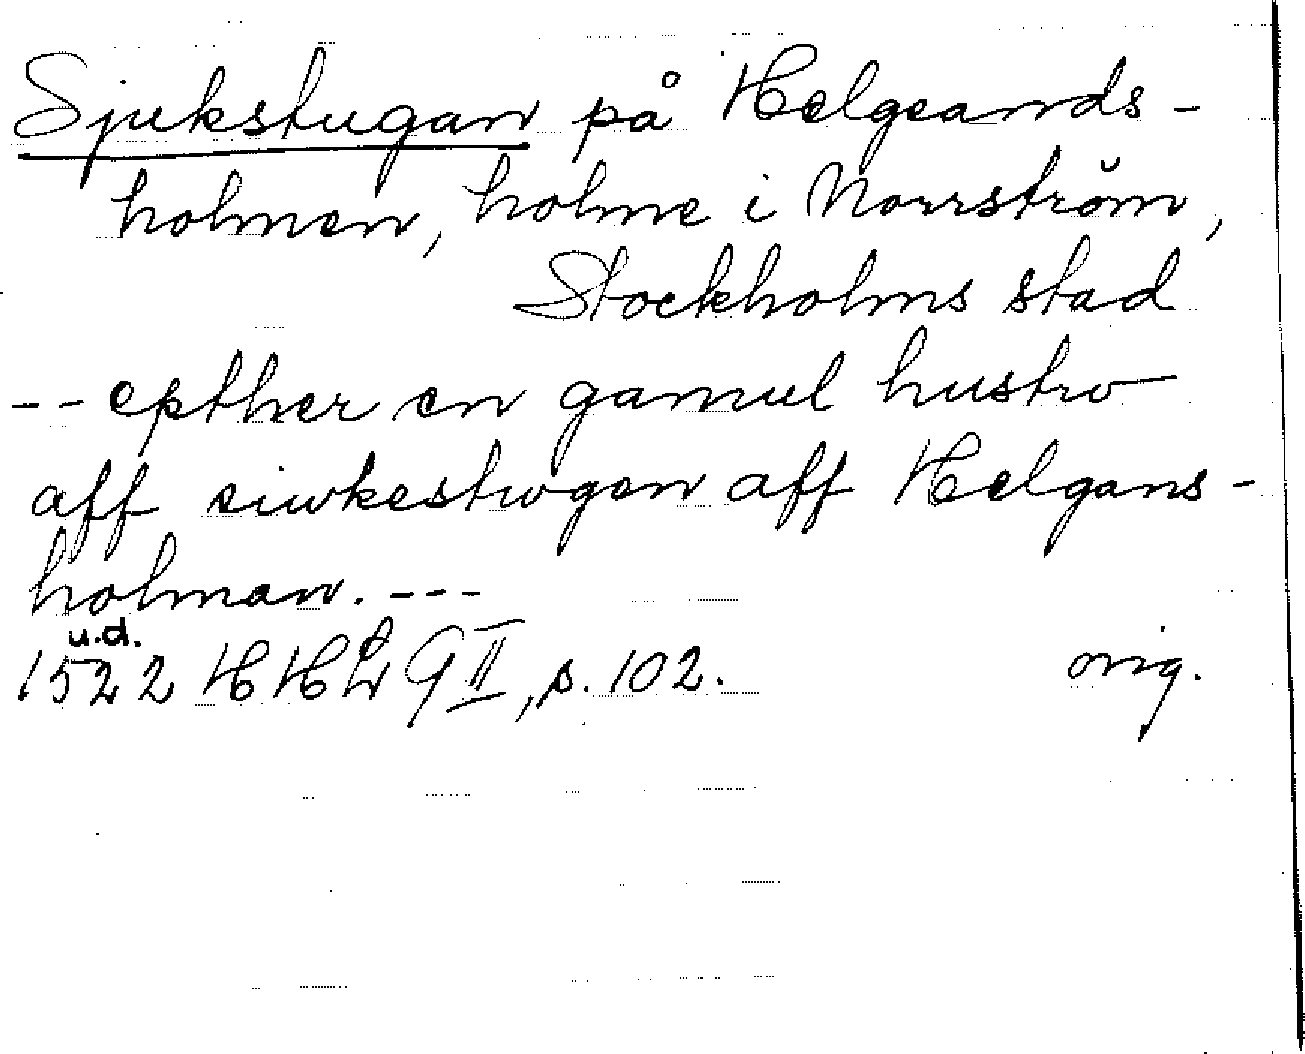 Sjukstugan på Helgeands-
holmen, holme i Norrström,
Stockholms stad
-- epther en gamul hustrv
aff siwkestwgen aff Helgans-
holman. ---
u.d.
1522 HH G II, s. 102. orig.